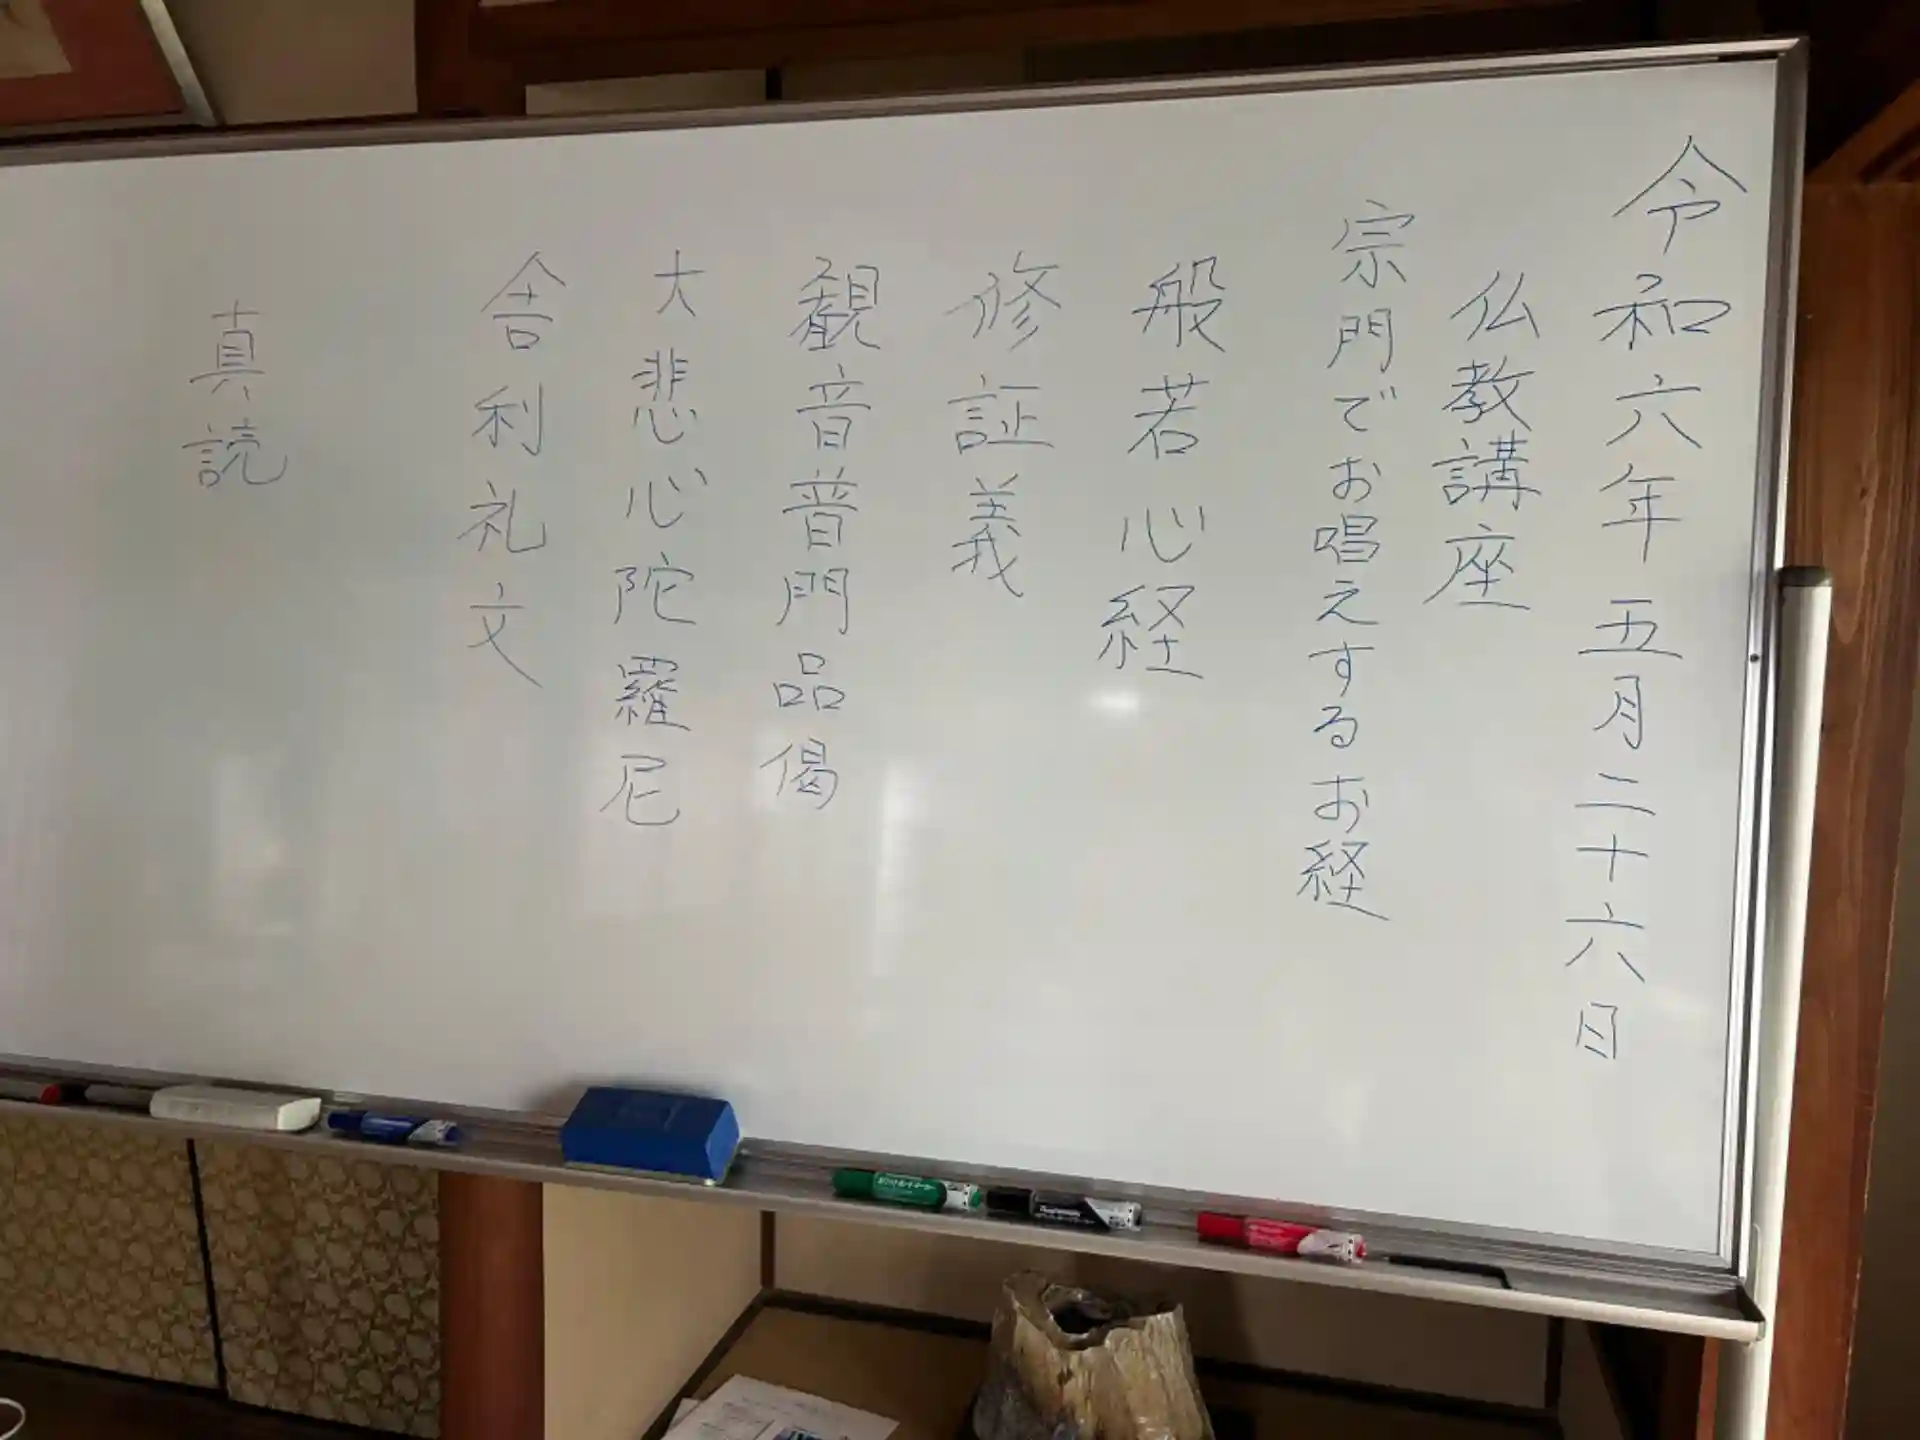 令和六年五月二十六日
仏教講座
宗門でお唱えするお経
般若心経
修証義
観音普門品偈
大悲心陀羅尼
舎利礼文
真読